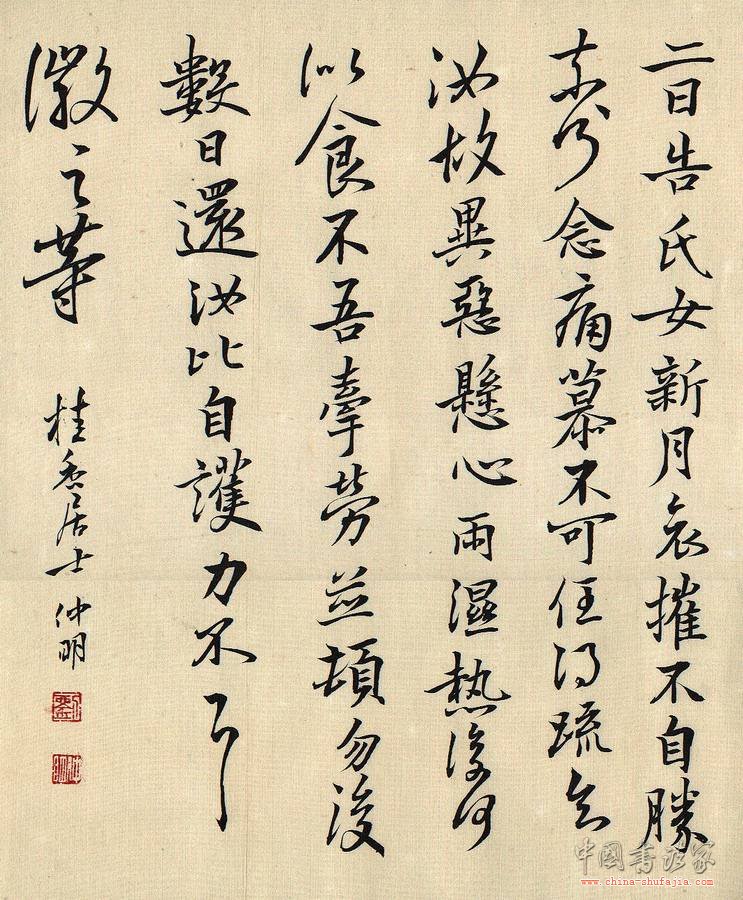 二日告氏女新月哀摧不自勝
奈何念痛慕不可任得疏知
汝故異惡懸心雨濕熱復何
似食不吾牽勞並頓勿復
數日還汝比自護力不一一
徽之等
桂香居士仲明
中國書法家
www.china-shufajia.com